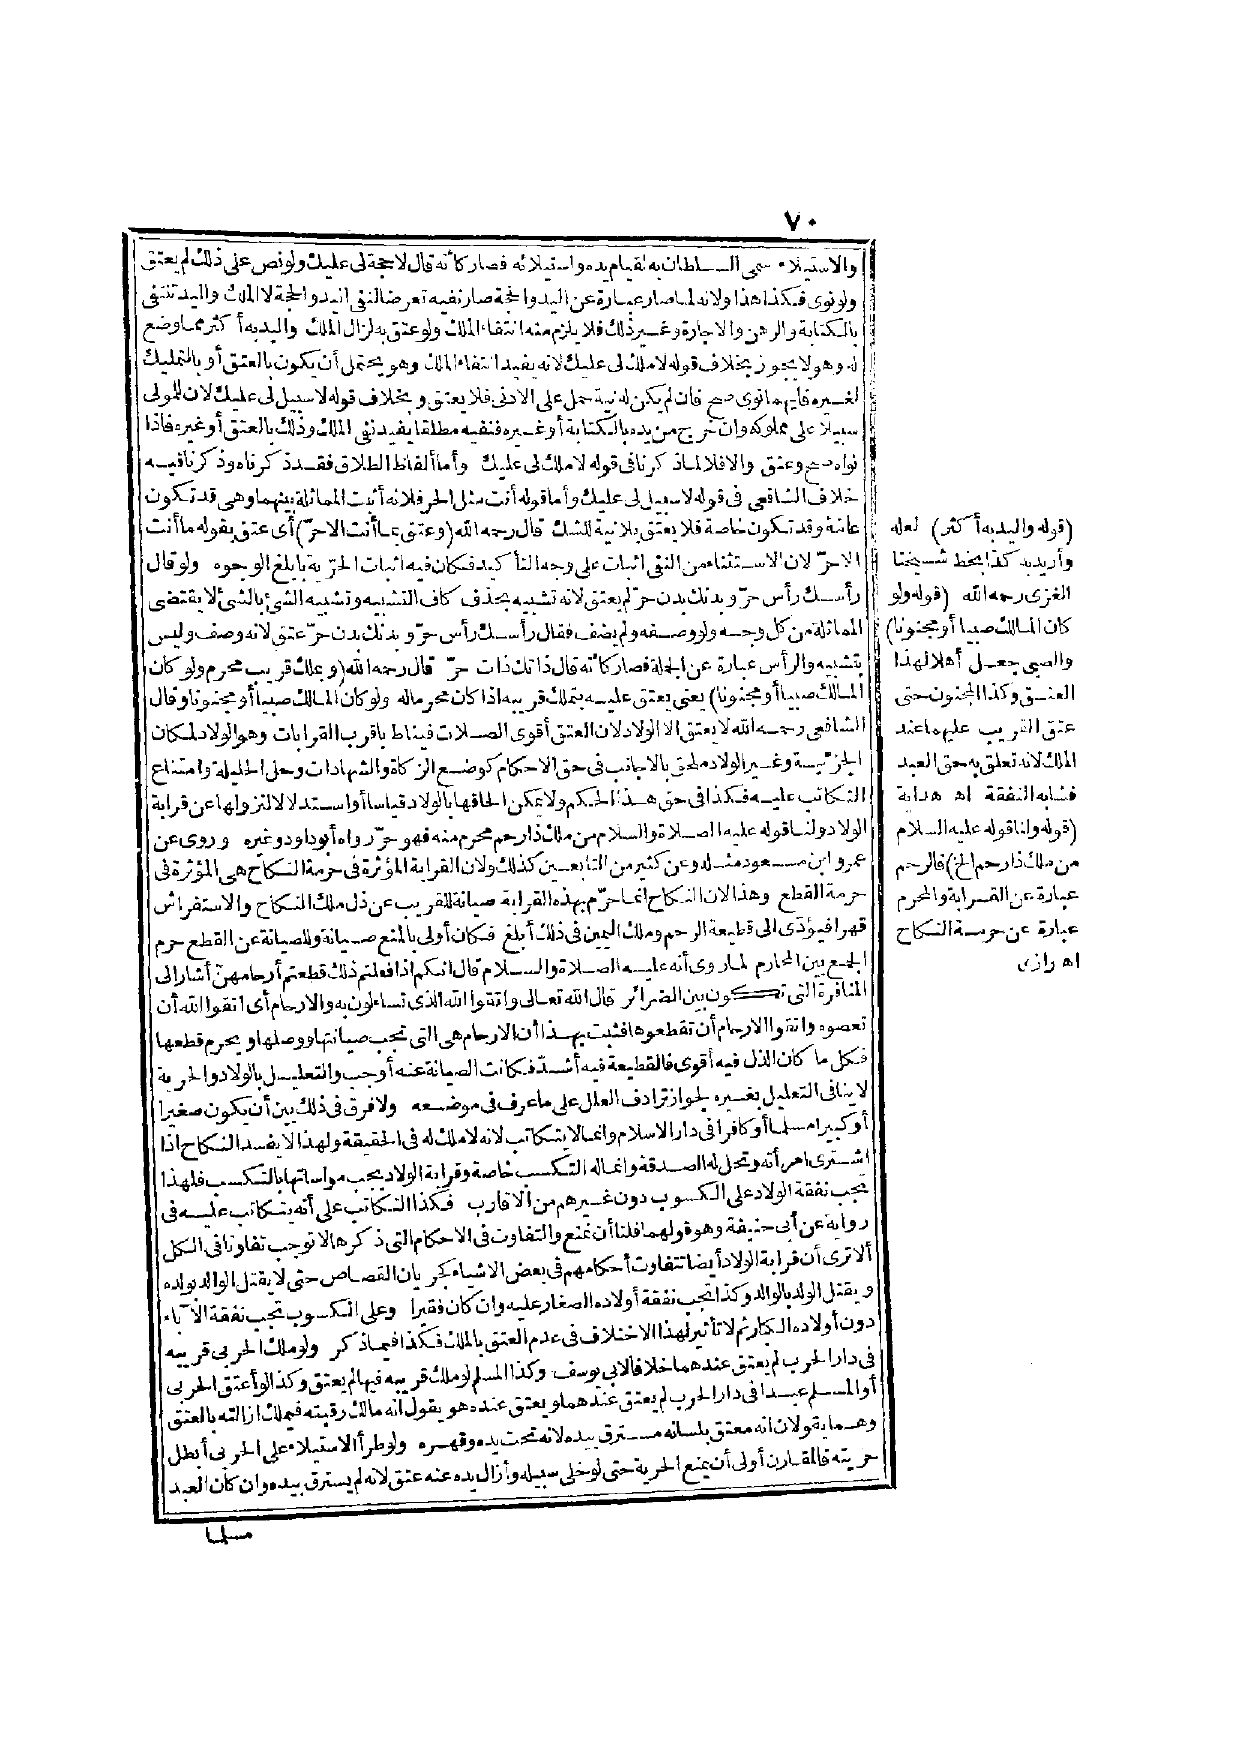 ٧٠
والاستيلاء سمى السلطان به لقيام يده واستيلائه فصار كأنه قال لا حجة لى عليك ولو نص على ذلك لم يعتق
ولو نوى فكذا هذا ولانه لما صار عبارة عن اليد والحجة صار نفيه تعرضا لنفى اليد والحجة لا الملك واليد تنتفى
بالكتابة والرهن والاجارة وغير ذلك فلا يلزم منه انتفاء الملك ولو عتق به لزال الملك واليد به أكثر مما وضع
له وهو لا يجوز بخلاف قوله لا ملك لى عليك لانه يفيد انتفاء الملك وهو يحتمل أن يكون بالعتق أو بالتمليك
لغيره فأيهما نوى صح فان لم يكن له نية حمل على الادنى فلا يعتق وبخلاف قوله لا سبيل لى عليك لان للمولى
سبيلا على مملوكه وان خرج من يده بالكتابة أو غيره فنفيه مطلقا يفيد نفى الملك وذلك بالعتق أو غيره فاذا
نواه صح وعتق والا فلا لما ذكرنا فى قوله لا ملك لى عليك وأما ألفاظ الطلاق فقد ذكرناه وذكرنا فيه
خلاف الشافعى فى قوله لا سبيل لى عليك وأما قوله أنت مثل الحر فلانه أثبت المماثلة بينهما وهى قد تكون
عامة وقد تكون خاصة فلا يعتق بلا نية للشك قال رحمه الله (وعتق بما أنت الا حرّ) أى عتق بقوله ما أنت
الا حرّ لان الاستثناء من النفى اثبات على وجه التأكيد فكان فيه اثبات الحرّية بأبلغ الوجوه ولو قال
رأسك رأس حرّ وبدنك بدن حرّ لم يعتق لانه تشبيه بحذف كاف التشبيه وتشبيه الشئ بالشئ لا يقتضى
المماثلة من كل وجه ولو وصفه ولم يضف فقال رأسك رأس حرّ وبدنك بدن حرّ عتق لانه وصف وليس
بتشبيه والرأس عبارة عن الجملة فصار كأنه قال ذاتك ذات حرّ قال رحمه الله (وبملك قريب محرم ولو كان
المالك صبيا أو مجنونا) يعنى يعتق عليه بتملك قريبه اذا كان محرما له ولو كان المالك صبيا أو مجنونا وقال
الشافعى رحمه الله لا يعتق الا الولاد لان العتق أقوى الصلات فيناط باقرب القرابات وهو الولاد لمكان
الجزئية وغير الولاد ملحق بالاجانب فى حق الاحكام كوضع الزكاة والشهادات وحل الحليلة وامتناع
التكاتب عليه فكذا فى حق هذا الحكم ولا يمكن الحاقها بالولاد قياسا أو استدلالا لنزولها عن قرابة
الولاد ولنا قوله عليه الصلاة والسلام من ملك ذا رحم محرم منه فهو حرّ رواه أبو داود وغيره وروى عن
عمر وابن مسعود مثله وعن كثير من التابعين كذلك ولان القرابة المؤثرة فى حرمة النكاح هى المؤثرة فى
حرمة القطع وهذا لان النكاح انما حرّم بهذه القرابة صيانة للقريب عن ذل ملك النكاح والاستفراش
قهرا فيؤدّى الى قطيعة الرحم وملك اليمين فى ذلك أبلغ فكان أولى بالمنع صيانة وللصيانة عن القطع حرم
الجمع بين المحارم لما روى أنه عليه الصلاة والسلام قال انكم اذا فعلتم ذلك قطعتم أرحامهنّ أشار الى
المنافرة التى تكون بين الضرائر قال الله تعالى واتقوا الله الذى تساءلون به والارحام أى اتقوا الله أن
تعصوه واتقوا الارحام أن تقطعوها فثبت بهذا أن الارحام هى التى تجب صيانتها ووصلها ويحرم قطعها
فكل ما كان الذل فيه أقوى فالقطيعة فيه أشدّ فكانت الصيانة عنه أوجب والتعليل بالولاد والحرية
لا ينافى التعليل بغيره لجواز ترادف العلل على ما عرف فى موضعه ولا فرق فى ذلك بين أن يكون صغيرا
أو كبيرا مسلما أو كافرا فى دار الاسلام وانما لا يتكاتب لانه لا ملك له فى الحقيقة ولهذا لا يفسد النكاح اذا
اشترى امرأته وتحل له الصدقة وانما له التكسب خاصة وقرابة الولاد يجب مواساتها بالتكسب فلهذا
تجب نفقة الولاد على الكسوب دون غيرهم من الاقارب فكذا التكاتب على أنه يتكاتب عليه فى
رواية عن أبى حنيفة وهو قولهما فلنا أن نمنع والتفاوت فى الاحكام التى ذكرها لا توجب تفاوتا فى الكل
ألا ترى أن قرابة الولاد أيضا تتفاوت أحكامهم فى بعض الاشياء كجريان القصاص حتى لا يقتل الوالد بولده
ويقتل الولد بالوالد وكذا تجب نفقة أولاده الصغار عليه وان كان فقيرا وعلى الكسوب تجب نفقة الآباء
دون أولاده الكبار ثم لا تأثير لهذا الاختلاف فى عدم العتق بالملك فكذا فيما ذكر ولو ملك الحربى قريبه
فى دار الحرب لم يعتق عندهما خلافا لابى يوسف وكذا المسلم لو ملك قريبه فيها لم يعتق وكذا لو أعتق الحربى
أو المسلم عبدا فى دار الحرب لم يعتق عندهما ويعتق عنده هو يقول انه مالك رقبته فيملك ازالته بالعتق
وهما يقولان انه معتق بلسانه مسترق بيده لانه تحت يده وقهره ولو طرأ الاستيلاء على الحربى أبطل
حريته فالمقارن أولى أن يمنع الحرية حتى لو خلى سبيله وأزال يده عنه عتق لانه لم يسترق بيده وان كان العبد
مسلما
(قوله واليد به أكثر) لعله
وأزيد به كذا بخط شيخنا
الغزى رحمه الله (قوله ولو
كان المالك صبيا أو مجنونا)
والصبى جعل أهلا لهذا
العتق وكذا المجنون حتى
عتق القريب عليهما عند
الملك لانه تعلق به حق العبد
فشابه النفقة اه هداية
(قوله ولنا قوله عليه السلام
من ملك ذا رحم الخ) فالرحم
عبارة عن القرابة والمحرم
عبارة عن حرمة النكاح
اه رازى